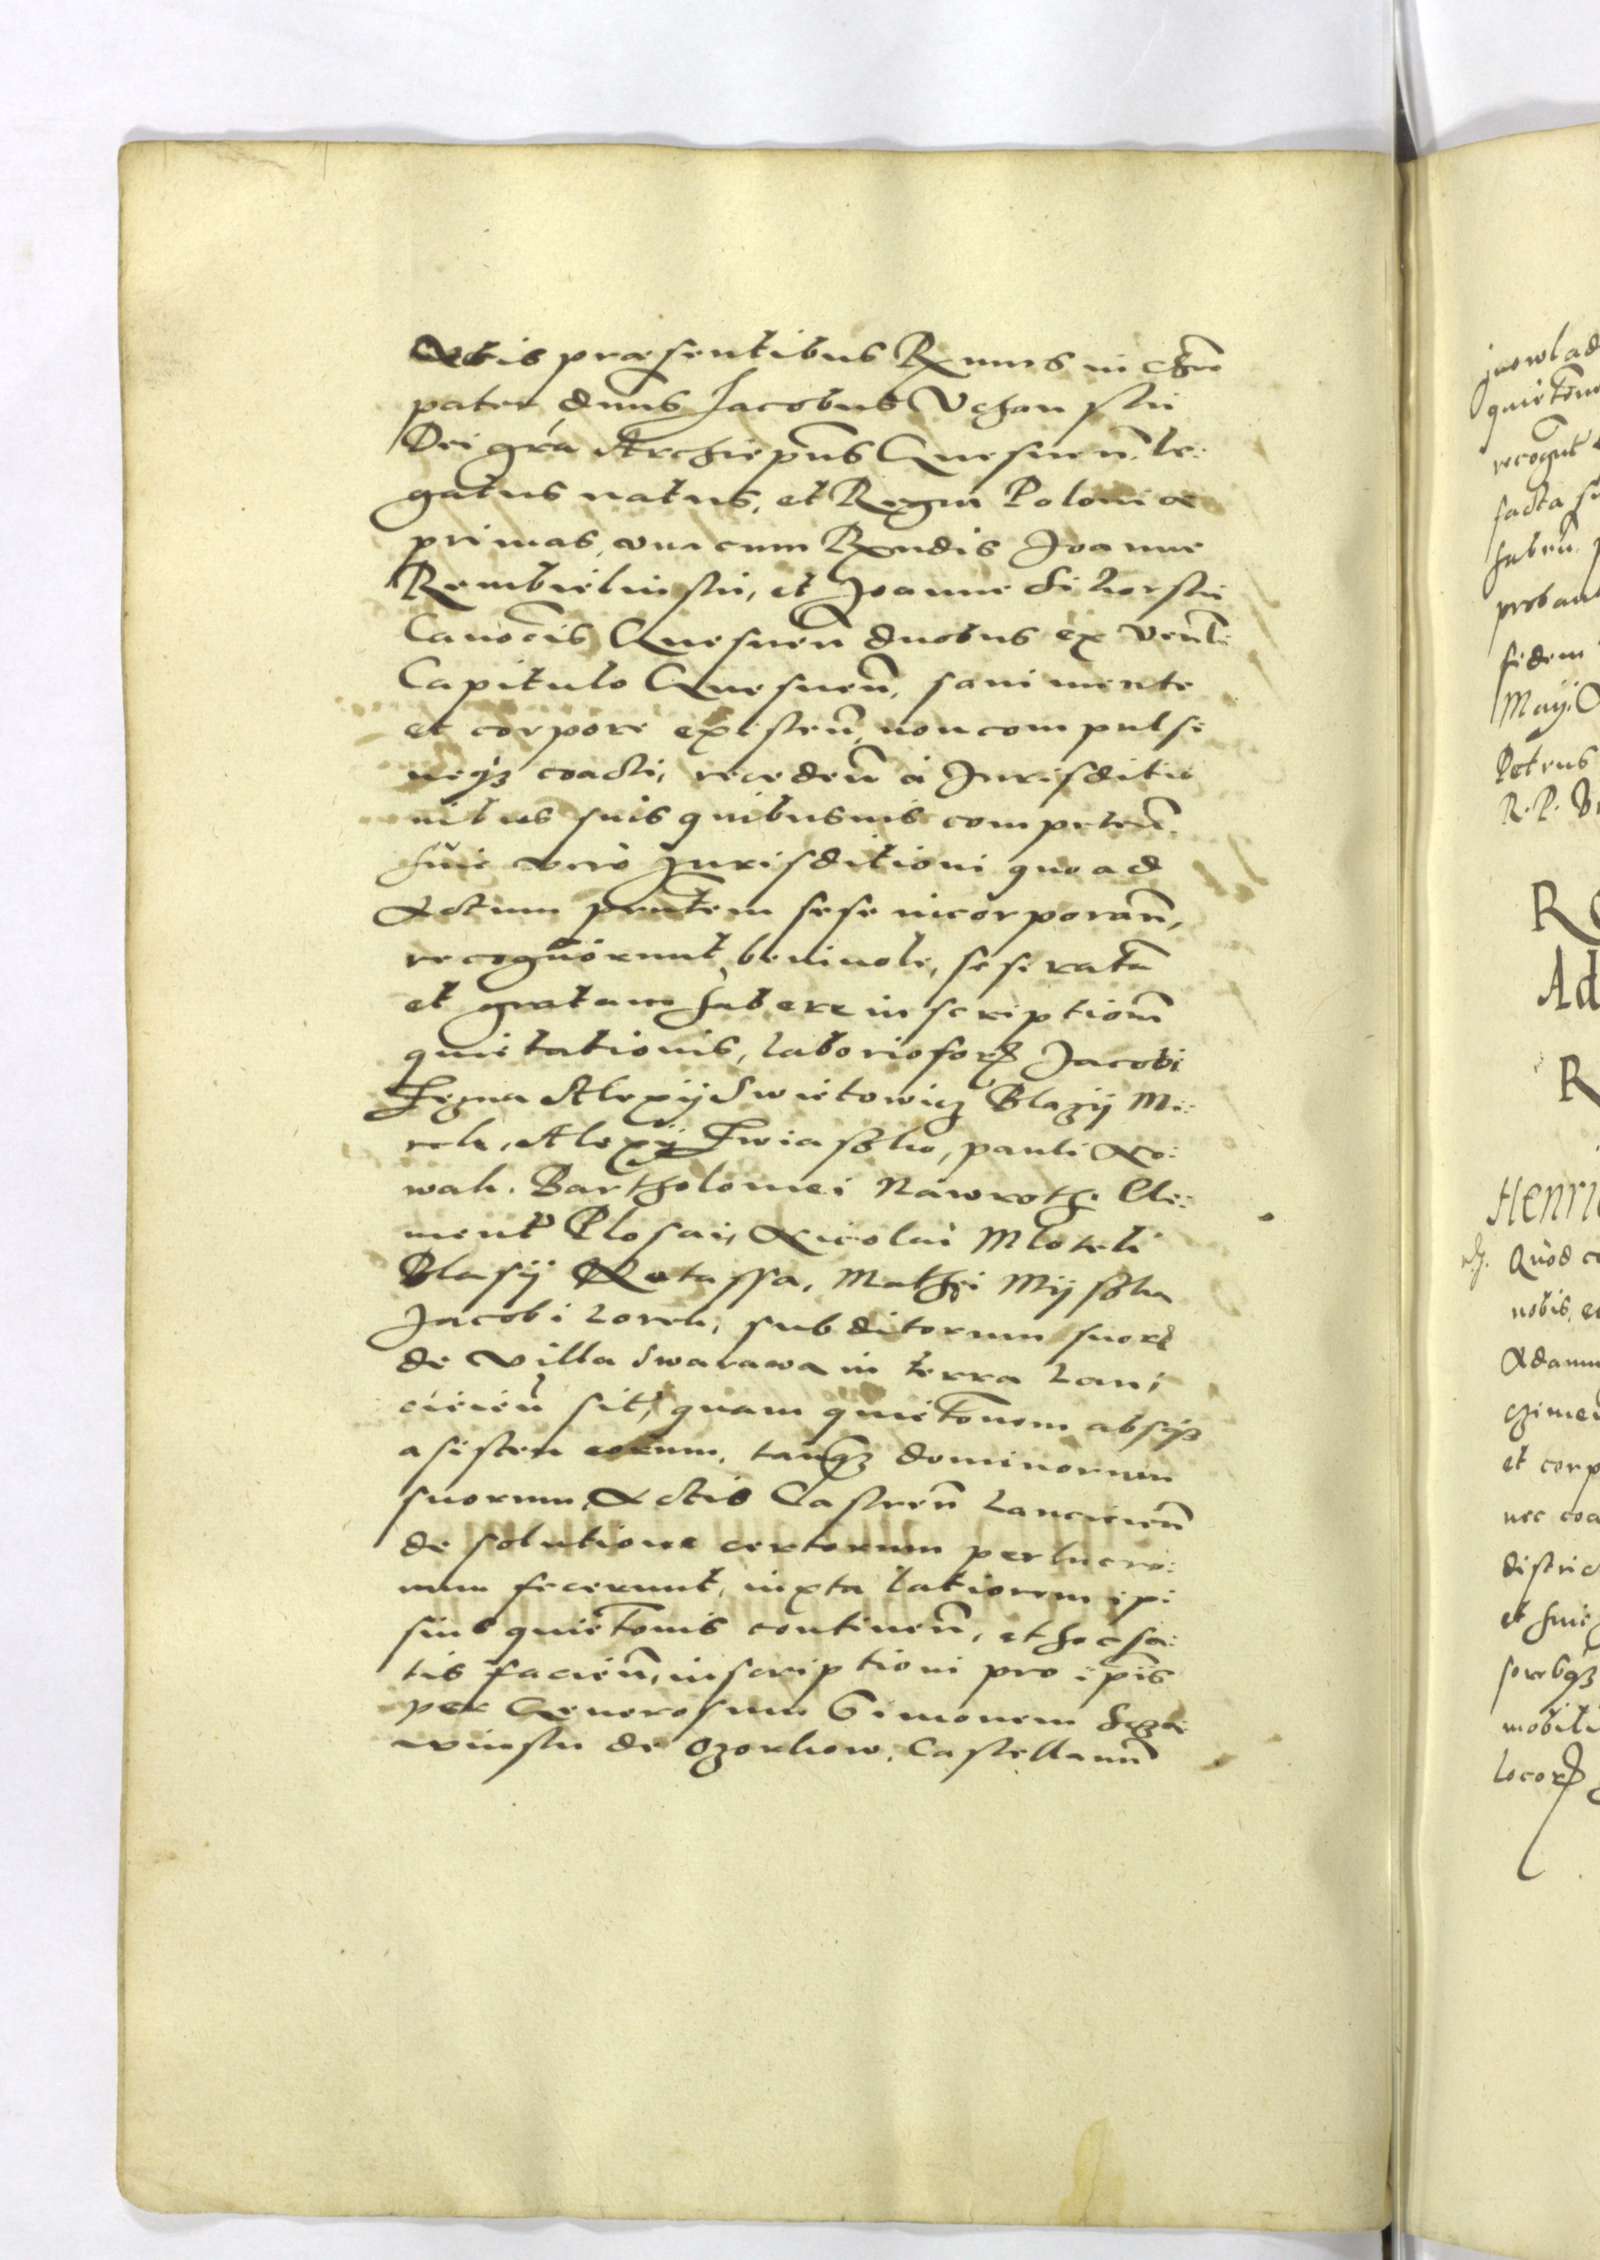 Actis præsentibus Rxmus in chro
pater dnus Jacobus Vchanskii
Dei gra Archiepus Gnesnen̄. le:
gatus natus, et Regni Poloniæ
primas, vna cum Rxndis Joanne
Rembielinskii, et Joanne Sikorskii
Canocis Gnesnen̄ duobus ex vene:
Capitulo Gnesnen̄, sani mente
et corpore existen̄, non compulsi
neqз coacti, receden̄ a Jurisditio
nibus suis quibusuis competen̄.
huic vero Jurisditioni quo ad
Actum pntem sese incorporan̄,
recognorunt beniuole, sese ratā
et gratam habere inscriptionē
quietationis, laboriosorꝝ Jacobi
Alexij Swietowicz Blazij Mi:
Alexij pauli No:
wak. Bartholomei Nawroth. Cle:
ment Plosai, Nicolai Mloteck
Blasij Matthei
Jacobi subditorum suorꝝ
de villa Swarawa in terra Lan:
cicien̄ sit, quam quietonem absqз
asisten eorum, tanqз dominorum
suorum, Actis Castren̄ Lancicien̄
de solutione certorum perlucro:
rum fecerunt, iuxta latiorem ipi
sius quietonis continen̄, et hoc sa:
tis facien̄, inscriptioni pro ipis
per Generosum Simonem Szga
winskii de Ozorkow. Castellanū

quietom
recognt
facta
haben
proban
fidem
Maij.
Petrus
R. P.
R
Ad
R
Henri
Quod co
nobis, et
Adamus
et corp
nec coa
distric
et huic
soribqз
mobili
locorꝝ